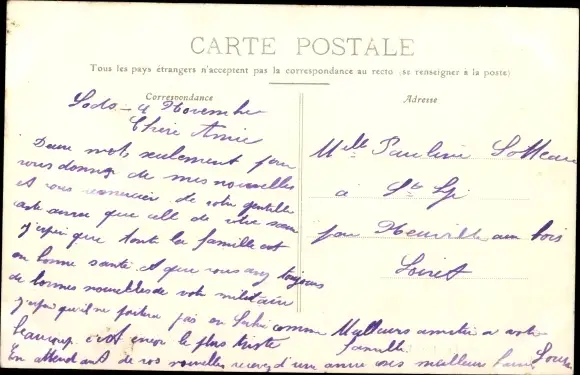 CARTE POSTALE
Tous les pays étrangers n'acceptent pas la correspondance au recto (se renseigner à la poste)
Correspondance
Adresse
4 Novembre
Chère Amie
Deux mots seulement pour
vous donner de mes nouvelles
et vous remercier de votre gentille
carte ainsi que celle de votre sœur
j'espère que toute la famille est
en bonne santé et que vous avez toujours
de bonnes nouvelles de votre militaire
j'espère qu'il ne partira pas en comme
beaucoup c'est encor le plus triste
En attendant de vos nouvelles recevez d'une amie ses meilleurs
Meilleurs amitié a votre
famille
Melle Pauline
à St Lyé
par Neuville aux bois
Loiret